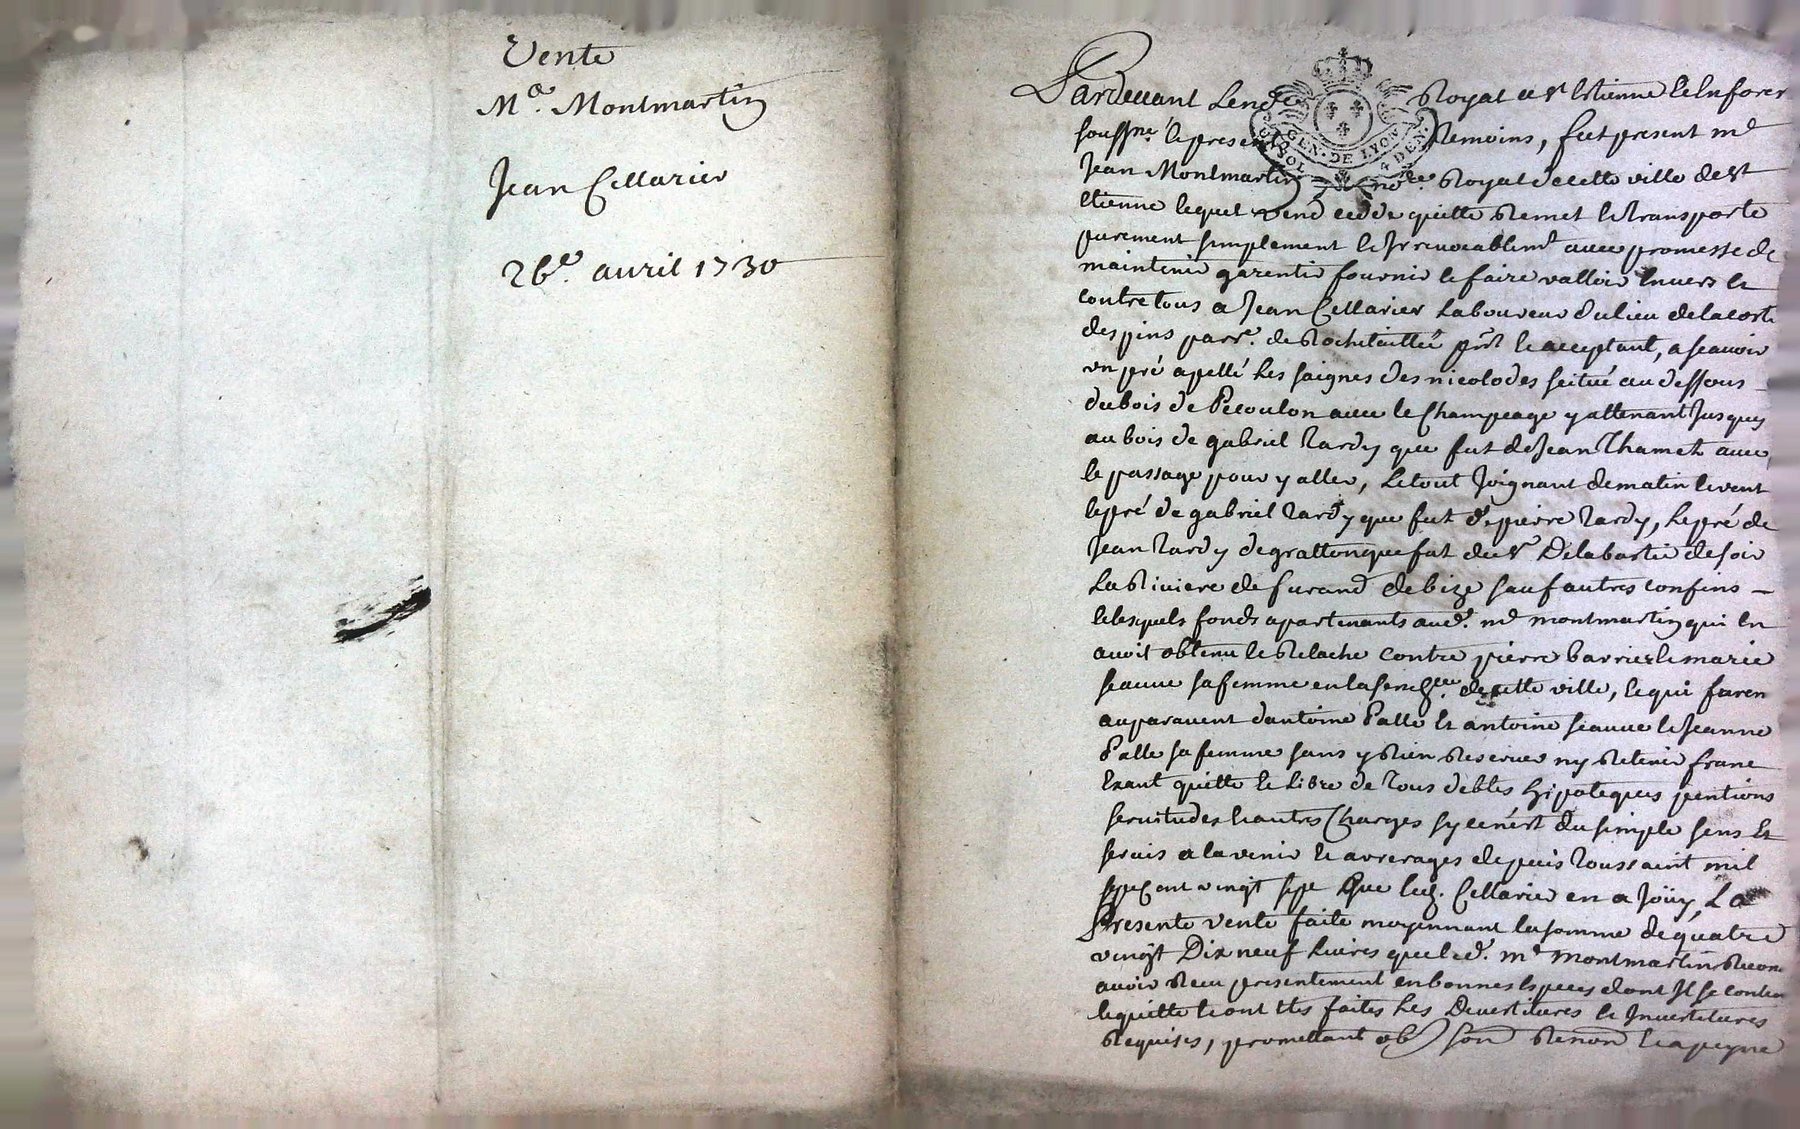 Vente
Me. Montmartin
Jean Cellarier
26e. avril 1730
GEN. DE LYON
Pardevant Le no.re Royal a St Etienne en forez
soussne. et presents temoins, fut present me
Jean Montmartin no.re Royal de cette ville de St
Etienne lequel vend cedde quitte remet et transporte
purement simplement et Irrevocablemt avec promesse de
maintenir garentir fournir et faire valloir Envers et
contre tous a Jean Cellarier Laboureur du lieu de la coste
des pins parre. de Rochetaillée pnt et acceptant, a scavoir
un pré apellé Les saignes des nicolodes scitué au dessous
du bois de Pecoulon avec le Champeage y attenant Jusques
au bois de gabriel tardy que fut de Jean Thamet avec
le passage pour y aller, Le tout Joignant de matin et vent
le pré de gabriel tardy que fut de pierre tardy, Le pré de
Jean tardy de gratton que fut du Sr Delabartie de soir
La Riviere de furand de bize sauf autres confins
lesquels fonds apartenants aud. me montmartin qui en
avoit obtenu le Relache contre pierre barrier et marie
seauve sa femme en la senech.ée de cette ville, et qui furen
auparavent d'antoine Palle Et antoine seauve et Jeanne
Palle sa femme sans y Rien Reserver ny Retenir franc
Exant quitte et Libre de tous debtes hipoteques pentions
servitudes et autres Charges sy ce n'est du simple sens Et
servis a la venir et arrerages depuis toussaint mil
sept cent vingt sept Que led. Cellarier en a Joüy, La
Presente vente faite moyennant la somme de quatre
vingt Dix neuf Livres que led. me montmartin
avoir Receu presentement en bonnes Especes dont Il se conten
et quitte et ont Etés faites Les Devestitures et Investitures
Requises, promettant ob son Renon et a peyne